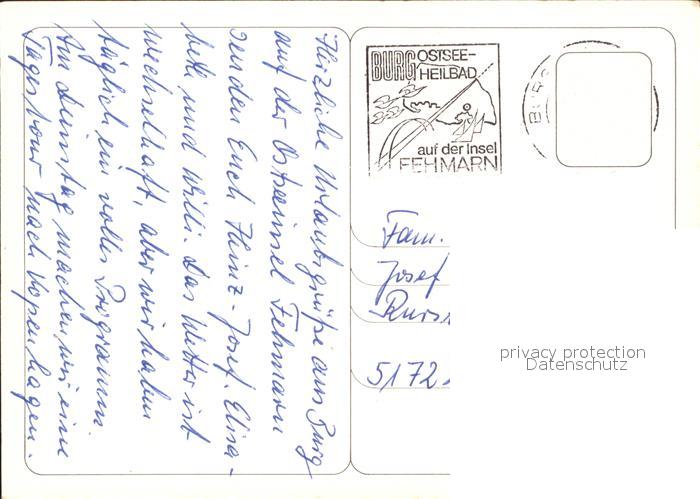 Herzliche Urlaubsgrüße aus Burg
auf der Ostseeinsel Fehmarn
senden Euch Heinz-Josef, Elisa-
beth und Willi. Das Wetter ist
wechselhaft, aber wir haben
täglich ein volles Programm.
Am Dienstag machen wir eine
Tagestour nach Kopenhagen.
BURG OSTSEE-
HEILBAD
auf der Insel
FEHMARN
BURG
Fam.
Josef
5172
privacy protection
Datenschutz